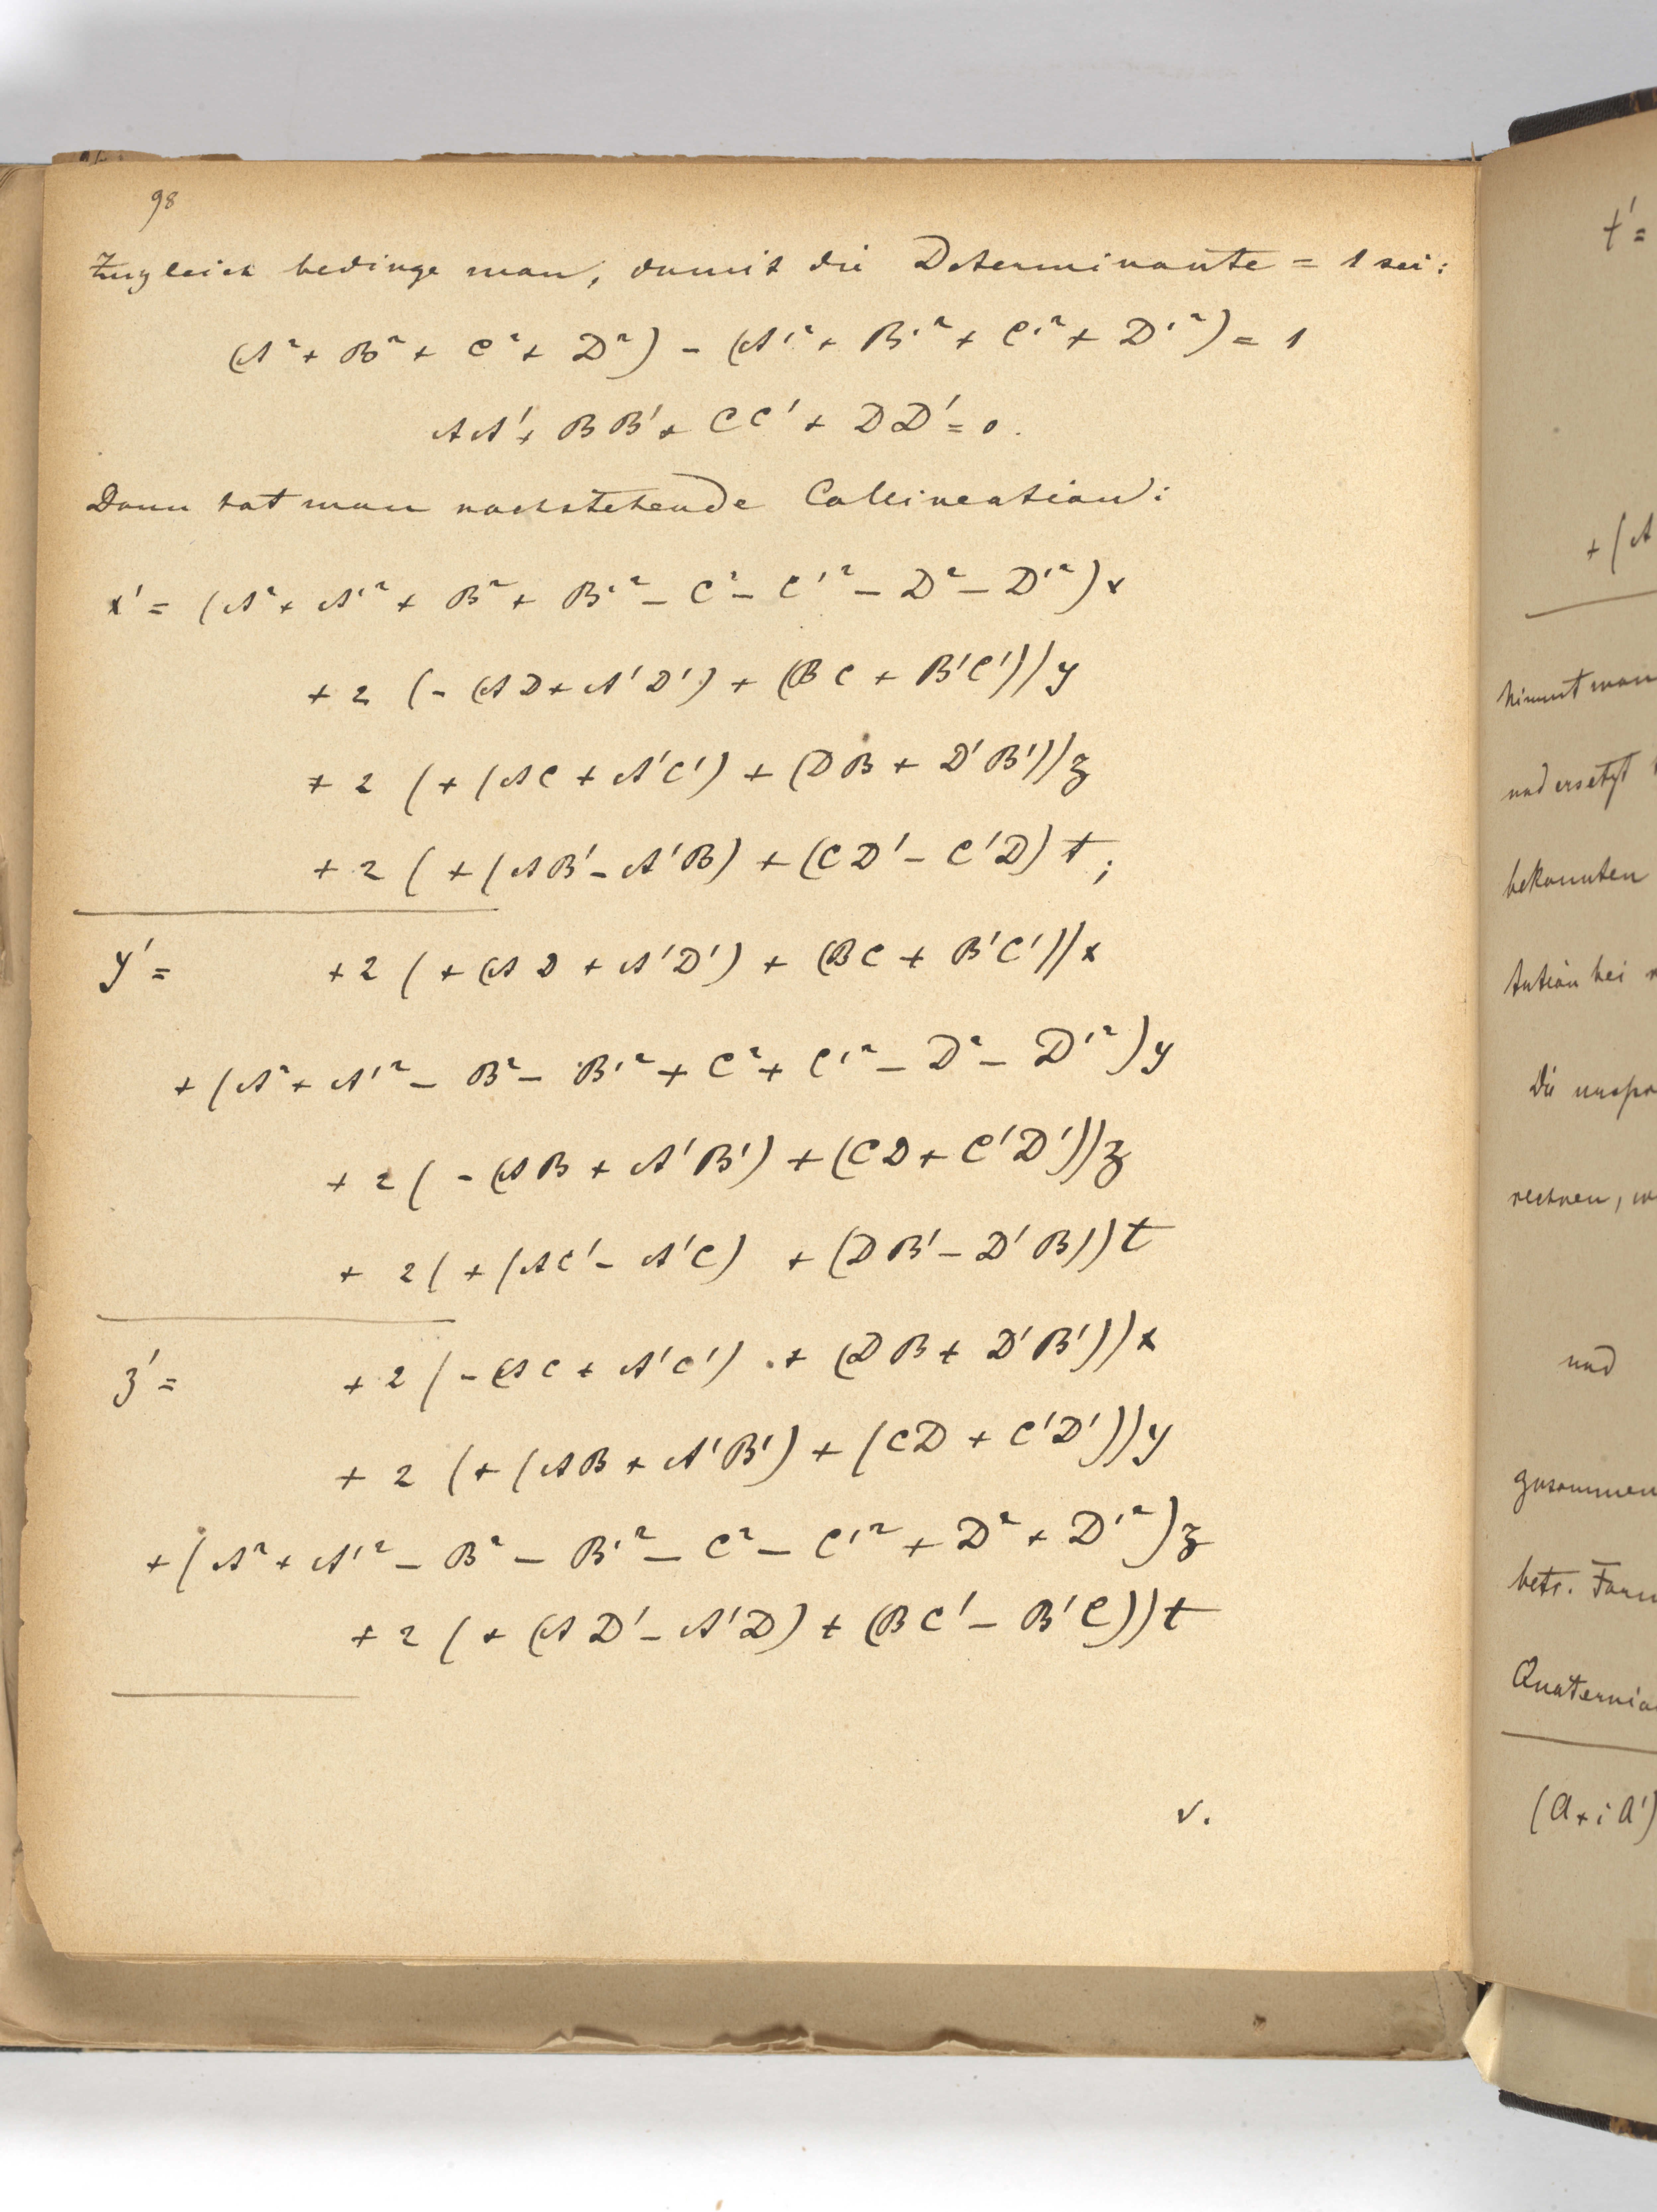 98
Zugleich bedinge man, damit die Determinante = 1 sei:
(A² + B² + C² + D²) - (A'² + B'² + C'² + D'²) = 1
AA' + BB' + CC' + DD' = 0.
Dann hat man nachstehende Collineation:
x' = (A² + A'² + B² + B'² - C² - C'² - D² - D'²) x
+ 2 (- (AD + A'D') + (BC + B'C')) y
+ 2 (+ (AC + A'C') + (DB + D'B')) z
+ 2 (+ (AB' - A'B) + (CD' - C'D) t;
y' = + 2 (+ (AD + A'D') + (BC + B'C')) x
+ (A² + A'² - B² - B'² + C² + C'² - D² - D'²) y
+ 2 (- (AB + A'B') + (CD + C'D')) z
+ 2 (+ (AC' - A'C) + (DB' - D'B)) t
z' = + 2 (- (AC + A'C') + (DB + D'B')) x
+ 2 (+ (AB + A'B') + (CD + C'D')) y
+ (A² + A'² - B² - B'² - C² - C'² + D² + D'²) z
+ 2 (+ (AD' - A'D) + (BC' - B'C)) t
v.
t' =
+ (A
nimmt man
und ersetzt
bekannten
tution bei
Die
rechnen,
und
zusammen
betr. Form
Quaternio
(a + i a')